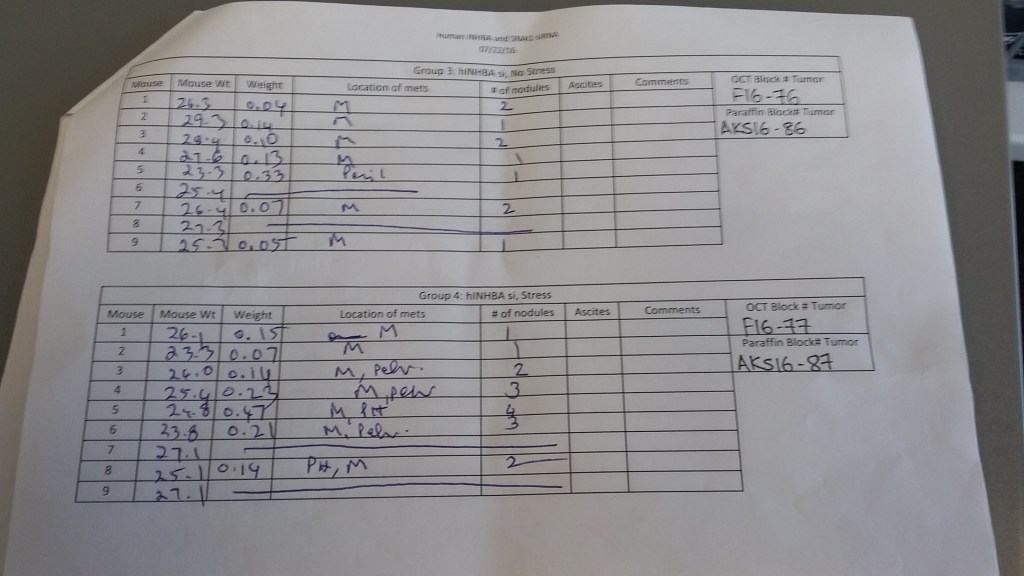 Human INHBA and SNAI2 siRNA
07/22/16
Group 3: hINHBA si, No Stress
Mouse Mouse Wt Weight Location of mets # of nodules Ascites Comments OCT Block # Tumor
1 26.3 0.04 M 2 F16-76
2 29.3 0.14 M 1 Paraffin Block# Tumor
3 28.4 0.10 M 2 AKS16-86
4 27.6 0.13 M 1
5 23.3 0.33 1
6 25.4
7 26.4 0.07 M 2
8 27.3
9 25.7 0.05 M 1
Group 4: hINHBA si, Stress
Mouse Mouse Wt Weight Location of mets # of nodules Ascites Comments OCT Block # Tumor
1 26.1 0.15 M 1 F16-77
2 23.3 0.07 M 1 Paraffin Block# Tumor
3 26.0 0.14 M, pelv. 2 AKS16-87
4 25.4 0.23 M, pelv 3
5 24.8 0.47 M, PH 4
6 23.8 0.21 M, Pelv. 3
7 27.1
8 25.1 0.14 PH, M 2
9 27.1